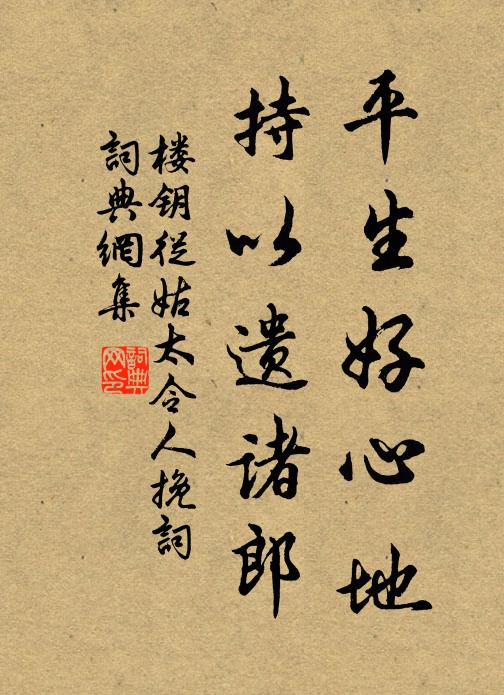 平生好心地
持以遗诸郎
楼钥从姑太令人挽詞
詞典網集
詞典网印